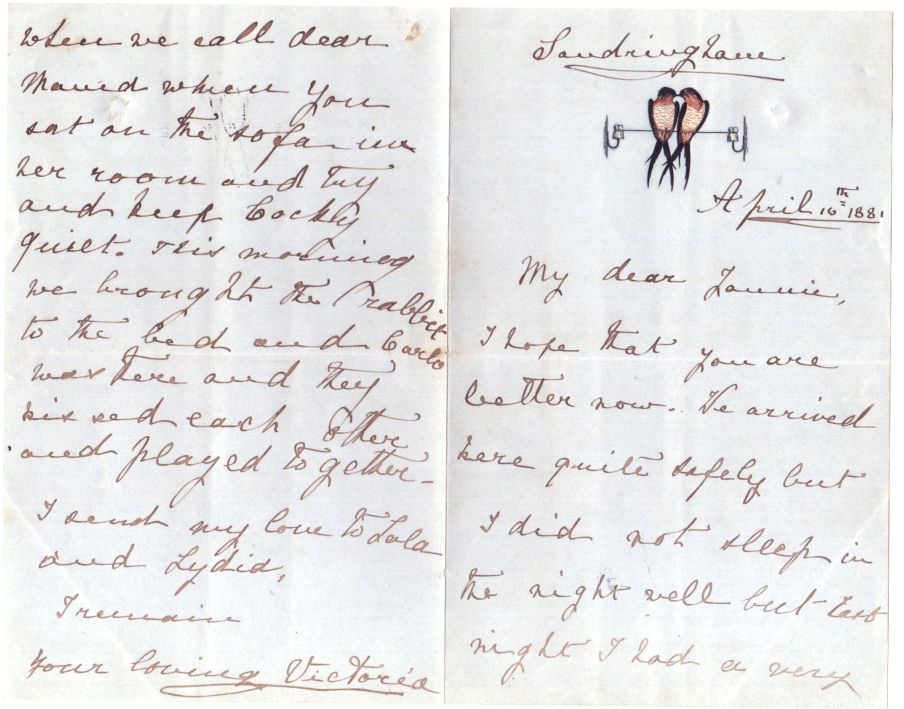 Sandringham
April 16th 1881
My dear Fannie,
I hope that you are
better now. We arrived
here quite safely but
I did not sleep in
the night well but last
night I had a very
when we call dear
Maud when you
sat on the sofa in
her room and try
and keep Cocky
quiet. This morning
we brought the rabbit
to the bed and Carlo
was there and they
kissed each other
and played together.
I send my love to Lala
and Lydia,
I remain
Your loving Victoria